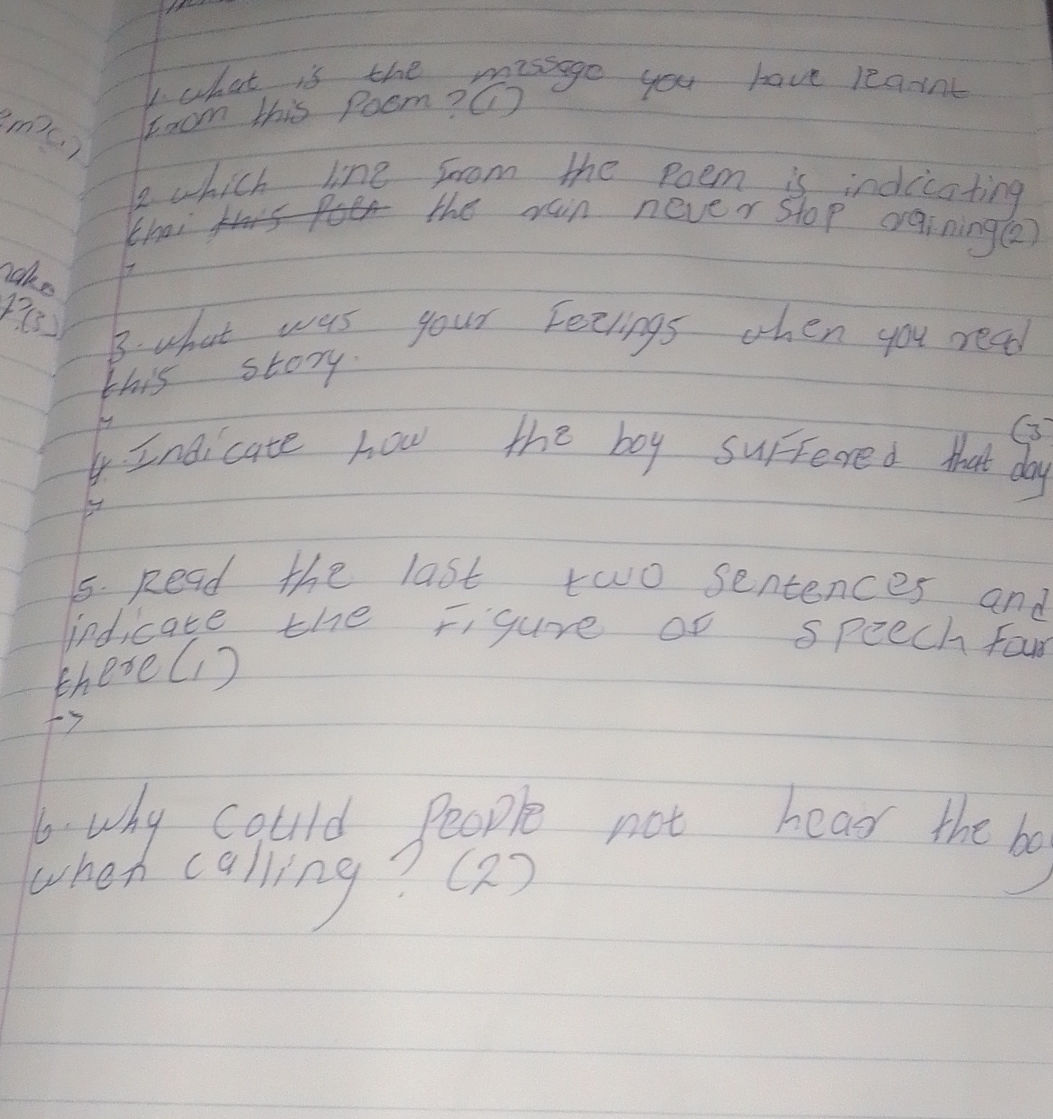 1. what is the message you have learnt
from this Poem? (1)
2. which line from the poem is indicating
the rain never stop raining (2)
3. what was your Feelings when you read
this story.
(3)
4. Indicate how the boy suffered that day
5. Read the last two sentences and
indicate the Figure of speech
there (1)
->
6. why could People not hear the
when calling? (2)